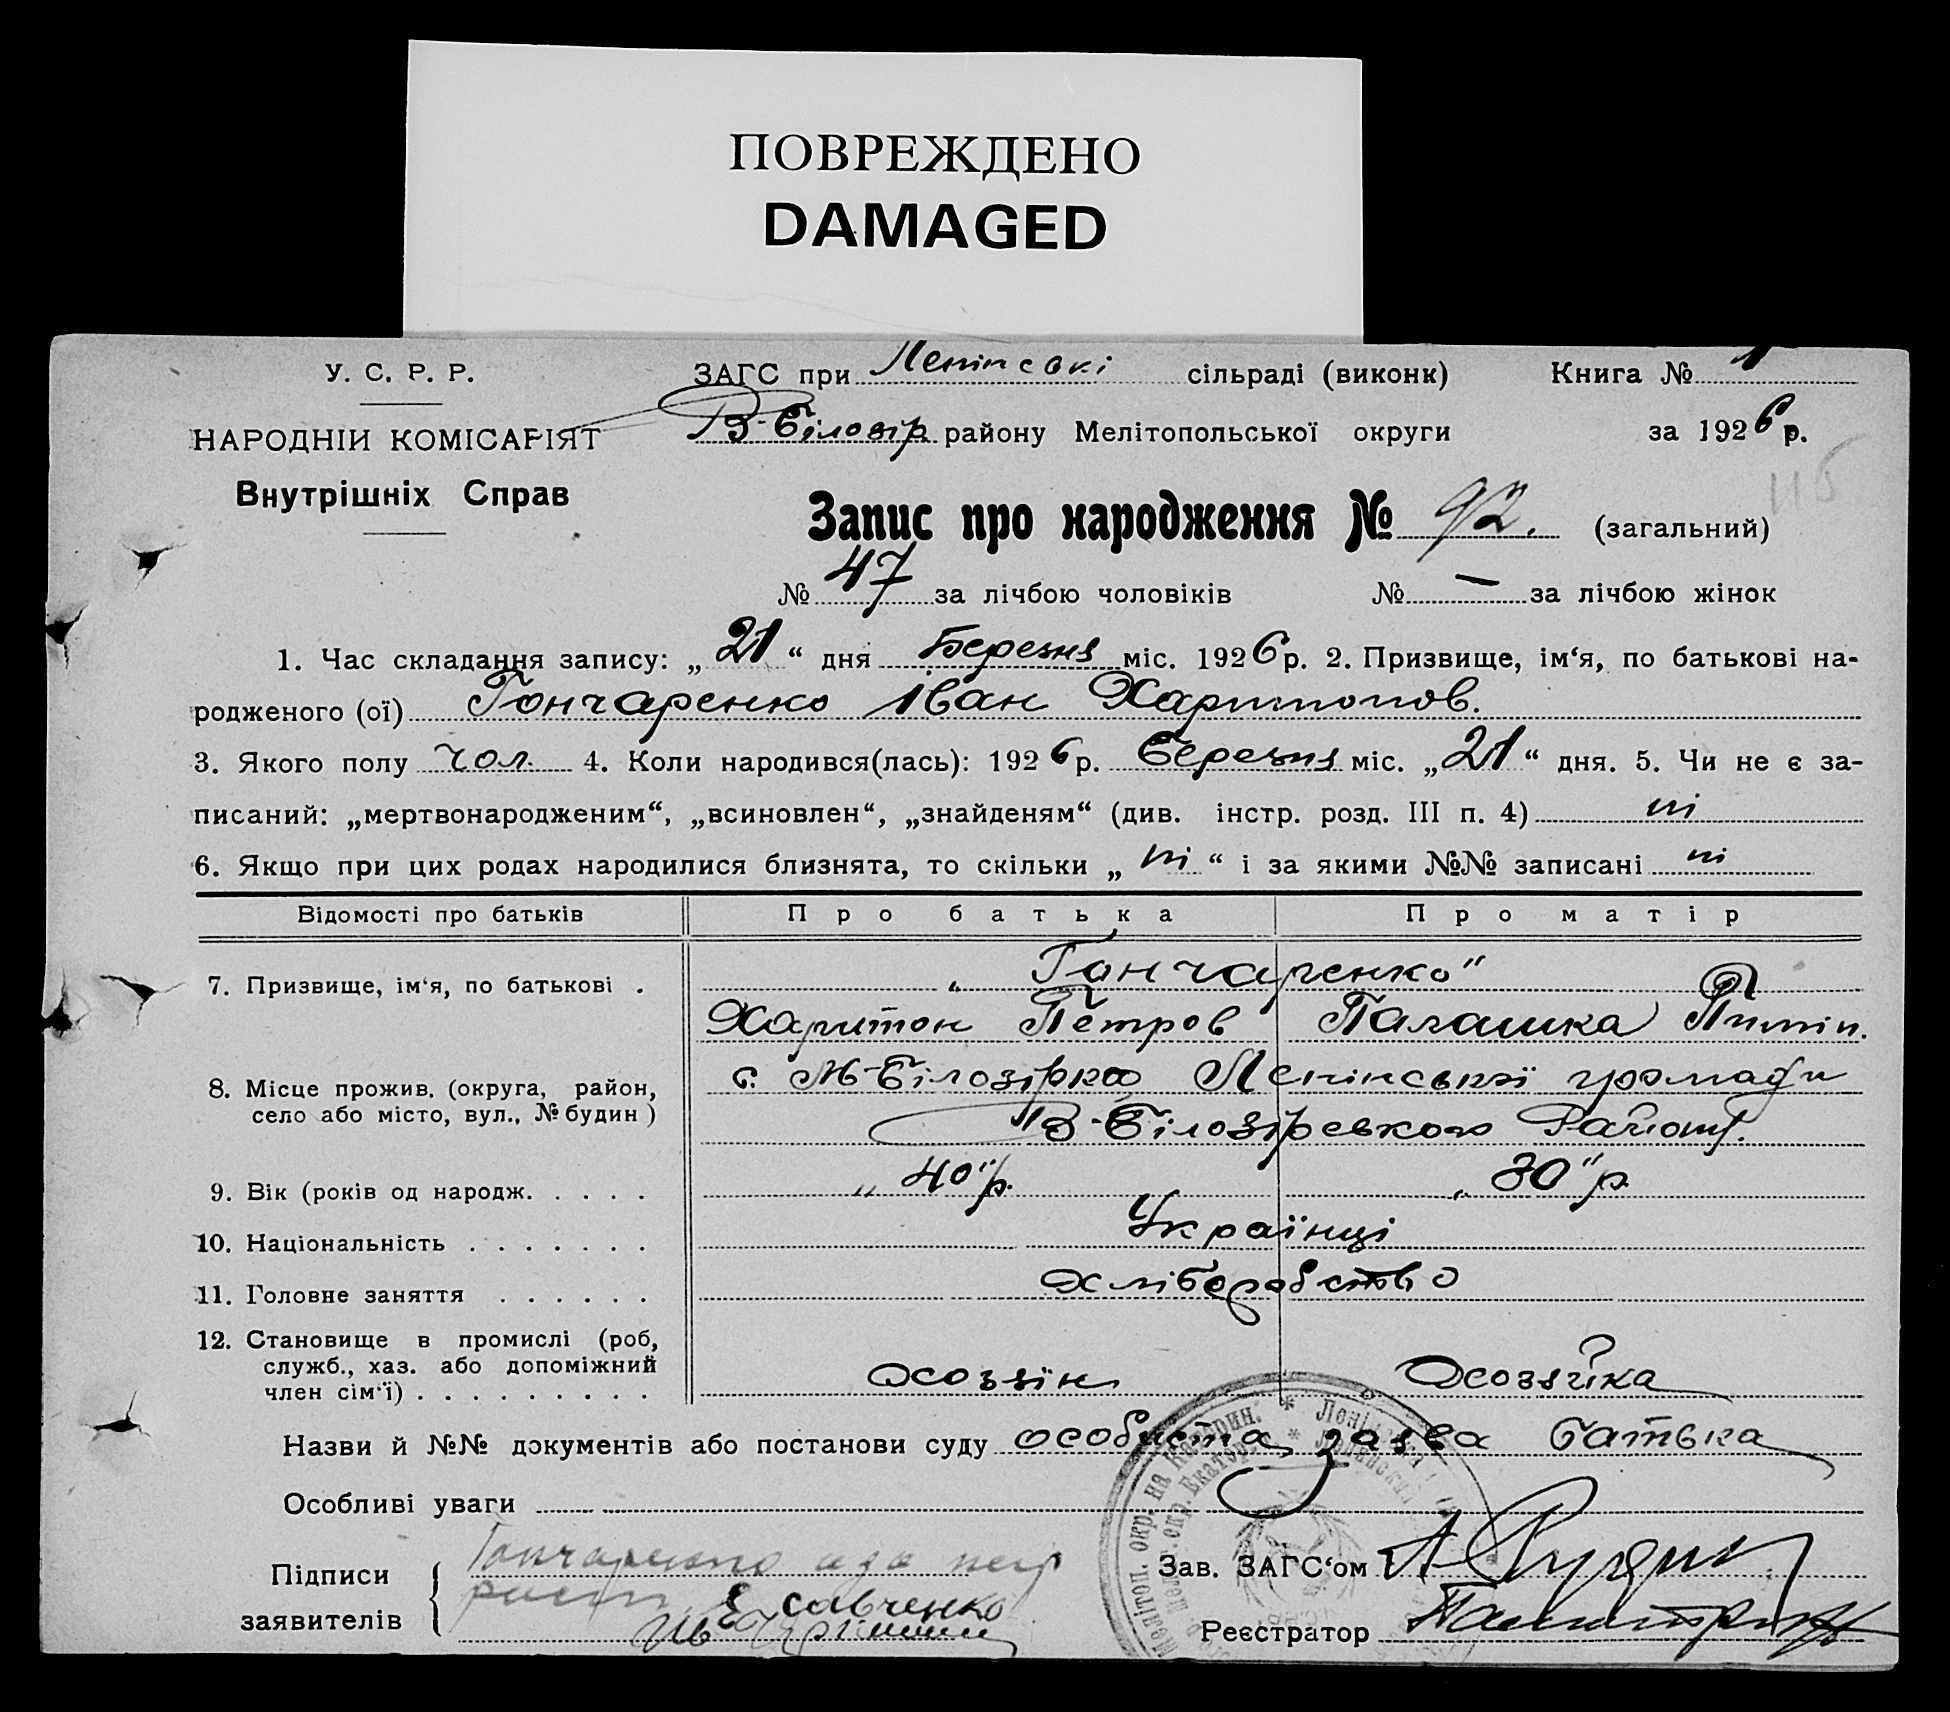 ПОВРЕЖДЕНО
DAMAGED
У. С. Р. Р.
ЗАГС при Ленінські сільраді (виконк) Книга № 1
НАРОДНІЙ КОМІСАРІЯТ
В-Білозір району Мелітопольської округи за 1926 р.
115
Внутрішніх Справ
Запис про народження № 92. (загальний)
№ 47 за лічбою чоловіків № — за лічбою жінок
1. Час складання запису: „21“ дня Березня міс. 1926 р. 2. Призвище, ім‘я, по батькові на-
родженого (ої) Гончаренко Іван Харитонов.
3. Якого полу чол. 4. Коли народився(лась): 1926 р. Березня міс. „21“ дня. 5. Чи не є за-
писаний: „мертвонародженим“, „всиновлен“, „знайденям“ (див. інстр. розд. III п. 4) ні
6. Якщо при цих родах народилися близнята, то скільки „ні“ і за якими №№ записані ні
Відомості про батьків Про батька Про матір
7. Призвище, ім‘я, по батькові . „Гончаренко“
Харитон Петров Палашка Пимін.
8. Місце прожив. (округа, район,
село або місто, вул., № будин )
с. М-Білозірка Ленінської громади
В-Білозірського Району.
9. Вік (років од народж. . . . . „40“ р. „30“ р.
10. Національність . . . . . . . Українці
11. Головне заняття . . . . . . хліборобство
12. Становище в промислі (роб,
служб., хаз. або допоміжний
член сім‘ї) . . . . . . . . .
хозяїн Хозяйка
Назви й №№ документів або постанови суду особиста заява батька
Особливі уваги
Підписи
заявителів
Гончаренко
Савченко
Зав. ЗАГС‘ом
Реєстратор